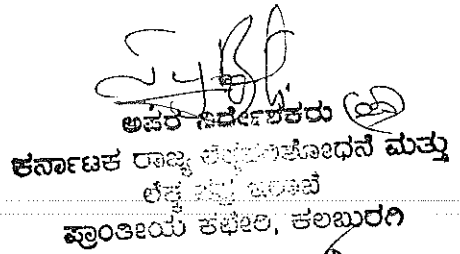 ಅಪರ ನಿರ್ದೇಶಕರು
ಕರ್ನಾಟಕ ರಾಜ್ಯ ಲೆಕ್ಕಪರಿಶೋಧನೆ ಮತ್ತು
ಲೆಕ್ಕ ಪತ್ರ ಇಲಾಖೆ
ಪ್ರಾಂತೀಯ ಕಛೇರಿ, ಕಲಬುರಗಿ